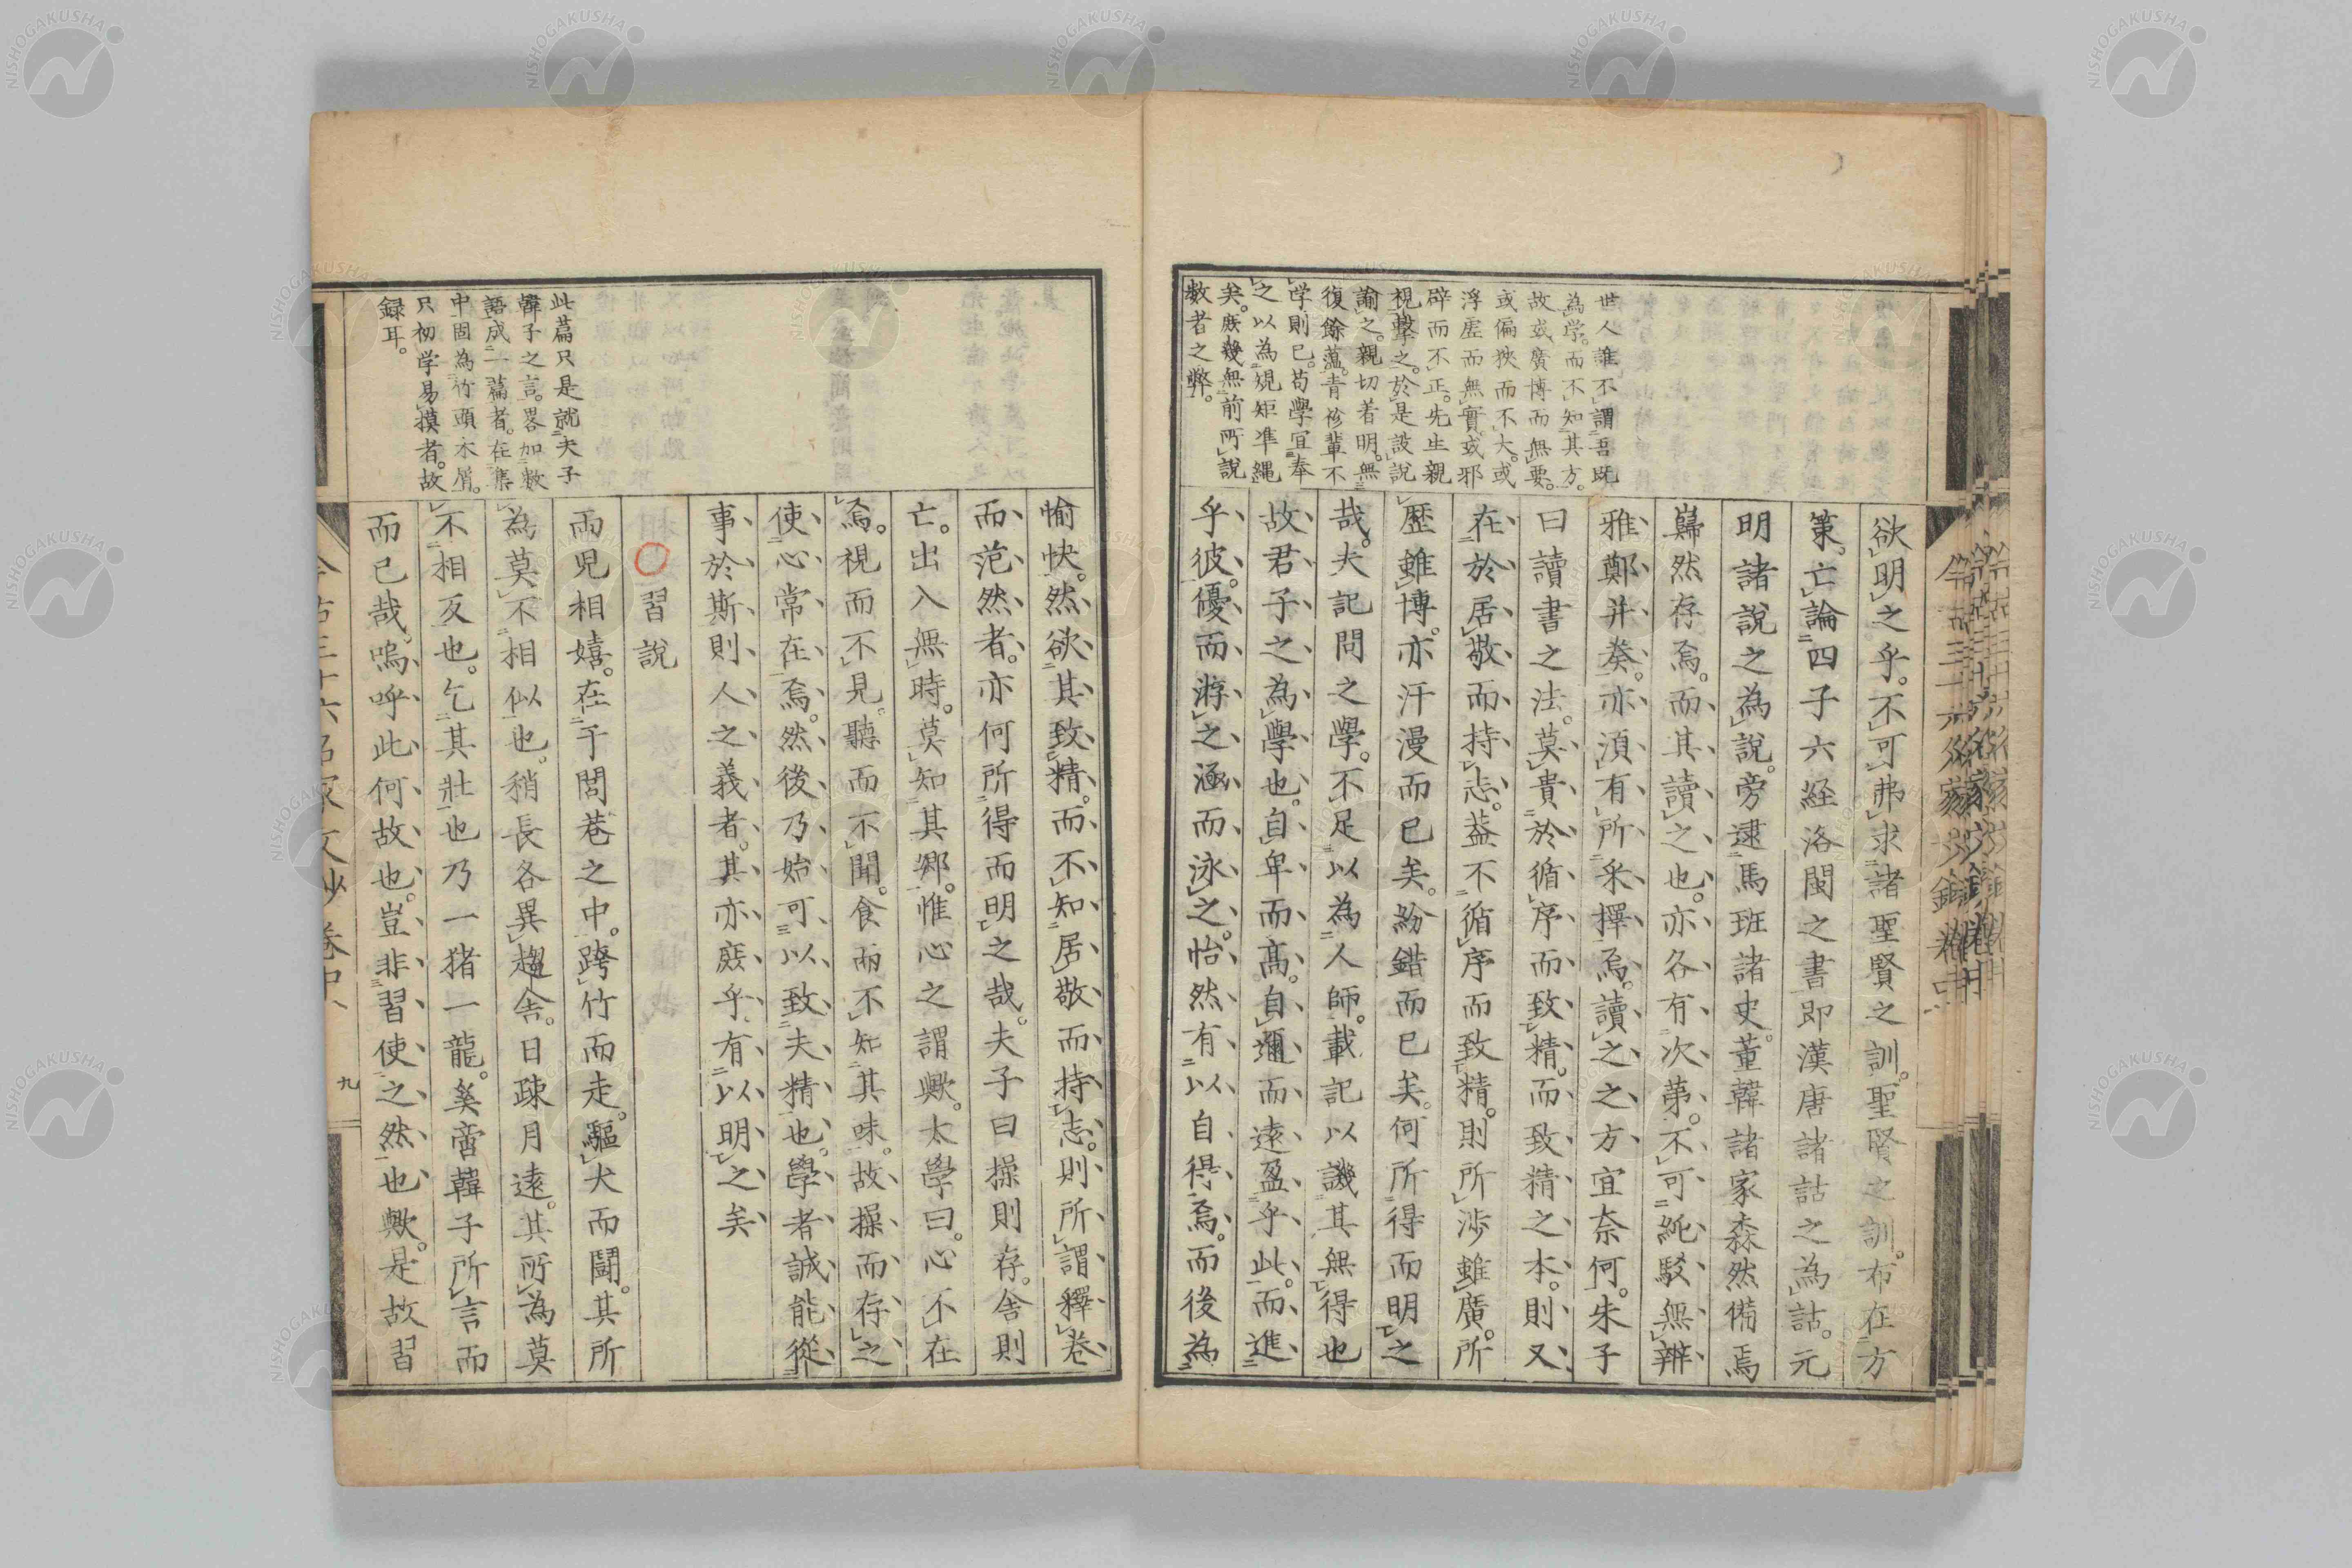 世人誰不謂吾既
為学。而不知其方。
故或廣博而無要。
或偏狹而不大。或
浮虚而無實。或邪
辟而不正。先生親
視擊之。於是設說
諭之。親切著明。無
復餘蘊。青衿輩不
学則已。苟學宜奉
之以為規矩準繩
矣。庶幾無前所說
數者之弊。
欲明之乎。不可弗求諸聖賢之訓。聖賢之訓。布在方
策。亡論四子六経洛閩之書即漢唐諸詁之為詁。元
明諸說之為說。旁逮馬班諸史。董韓諸家森然備焉
巋然存焉。而其讀之也。亦各有次第。不可純駁無辨
雅鄭并奏。亦須有所采擇焉。讀之之方宜奈何。朱子
曰讀書之法。莫貴於循序而致精。而致精之本。則又
在於居敬而持志。蓋不循序而致精。則所涉雖廣。所
歷雖博。亦汗漫而已矣。紛錯而已矣。何所得而明之
哉。夫記問之學。不足以為人師。載記以譏其無得也
故君子之為學也。自卑而高。自邇而遠盈乎此。而進
乎彼。優而游之涵而泳之。怡然有以自得焉。而後為
愉快。然欲其致精。而不知居敬而持志。則所謂釋卷
而茫然者。亦何所得而明之哉。夫子曰操則存。舍則
亡。出入無時。莫知其鄉。惟心之謂歟。太學曰。心不在
焉。視而不見。聽而不聞。食而不知其味。故操而存之
使心常在焉。然後乃始可以致夫精也。學者誠能從
事於斯則人之義者。其亦庶乎有以明之矣
習說
此篇只是就夫子
韓子之言。畧加数
語成一篇者。在集
中固為竹頭木屑。
只初学易摸者。故
録耳。
両児相嬉。在于閭巷之中。跨竹而走。驅犬而鬪。其所
為莫不相似也。稍長各異趨舎。日疎月遠。其所為莫
不相反也。乞其壯也乃一猪一龍。奚啻韓子所言而
而已哉。嗚呼此何故也。豈非習使之然也歟。是故習
今古三十六名家文抄 卷中 九